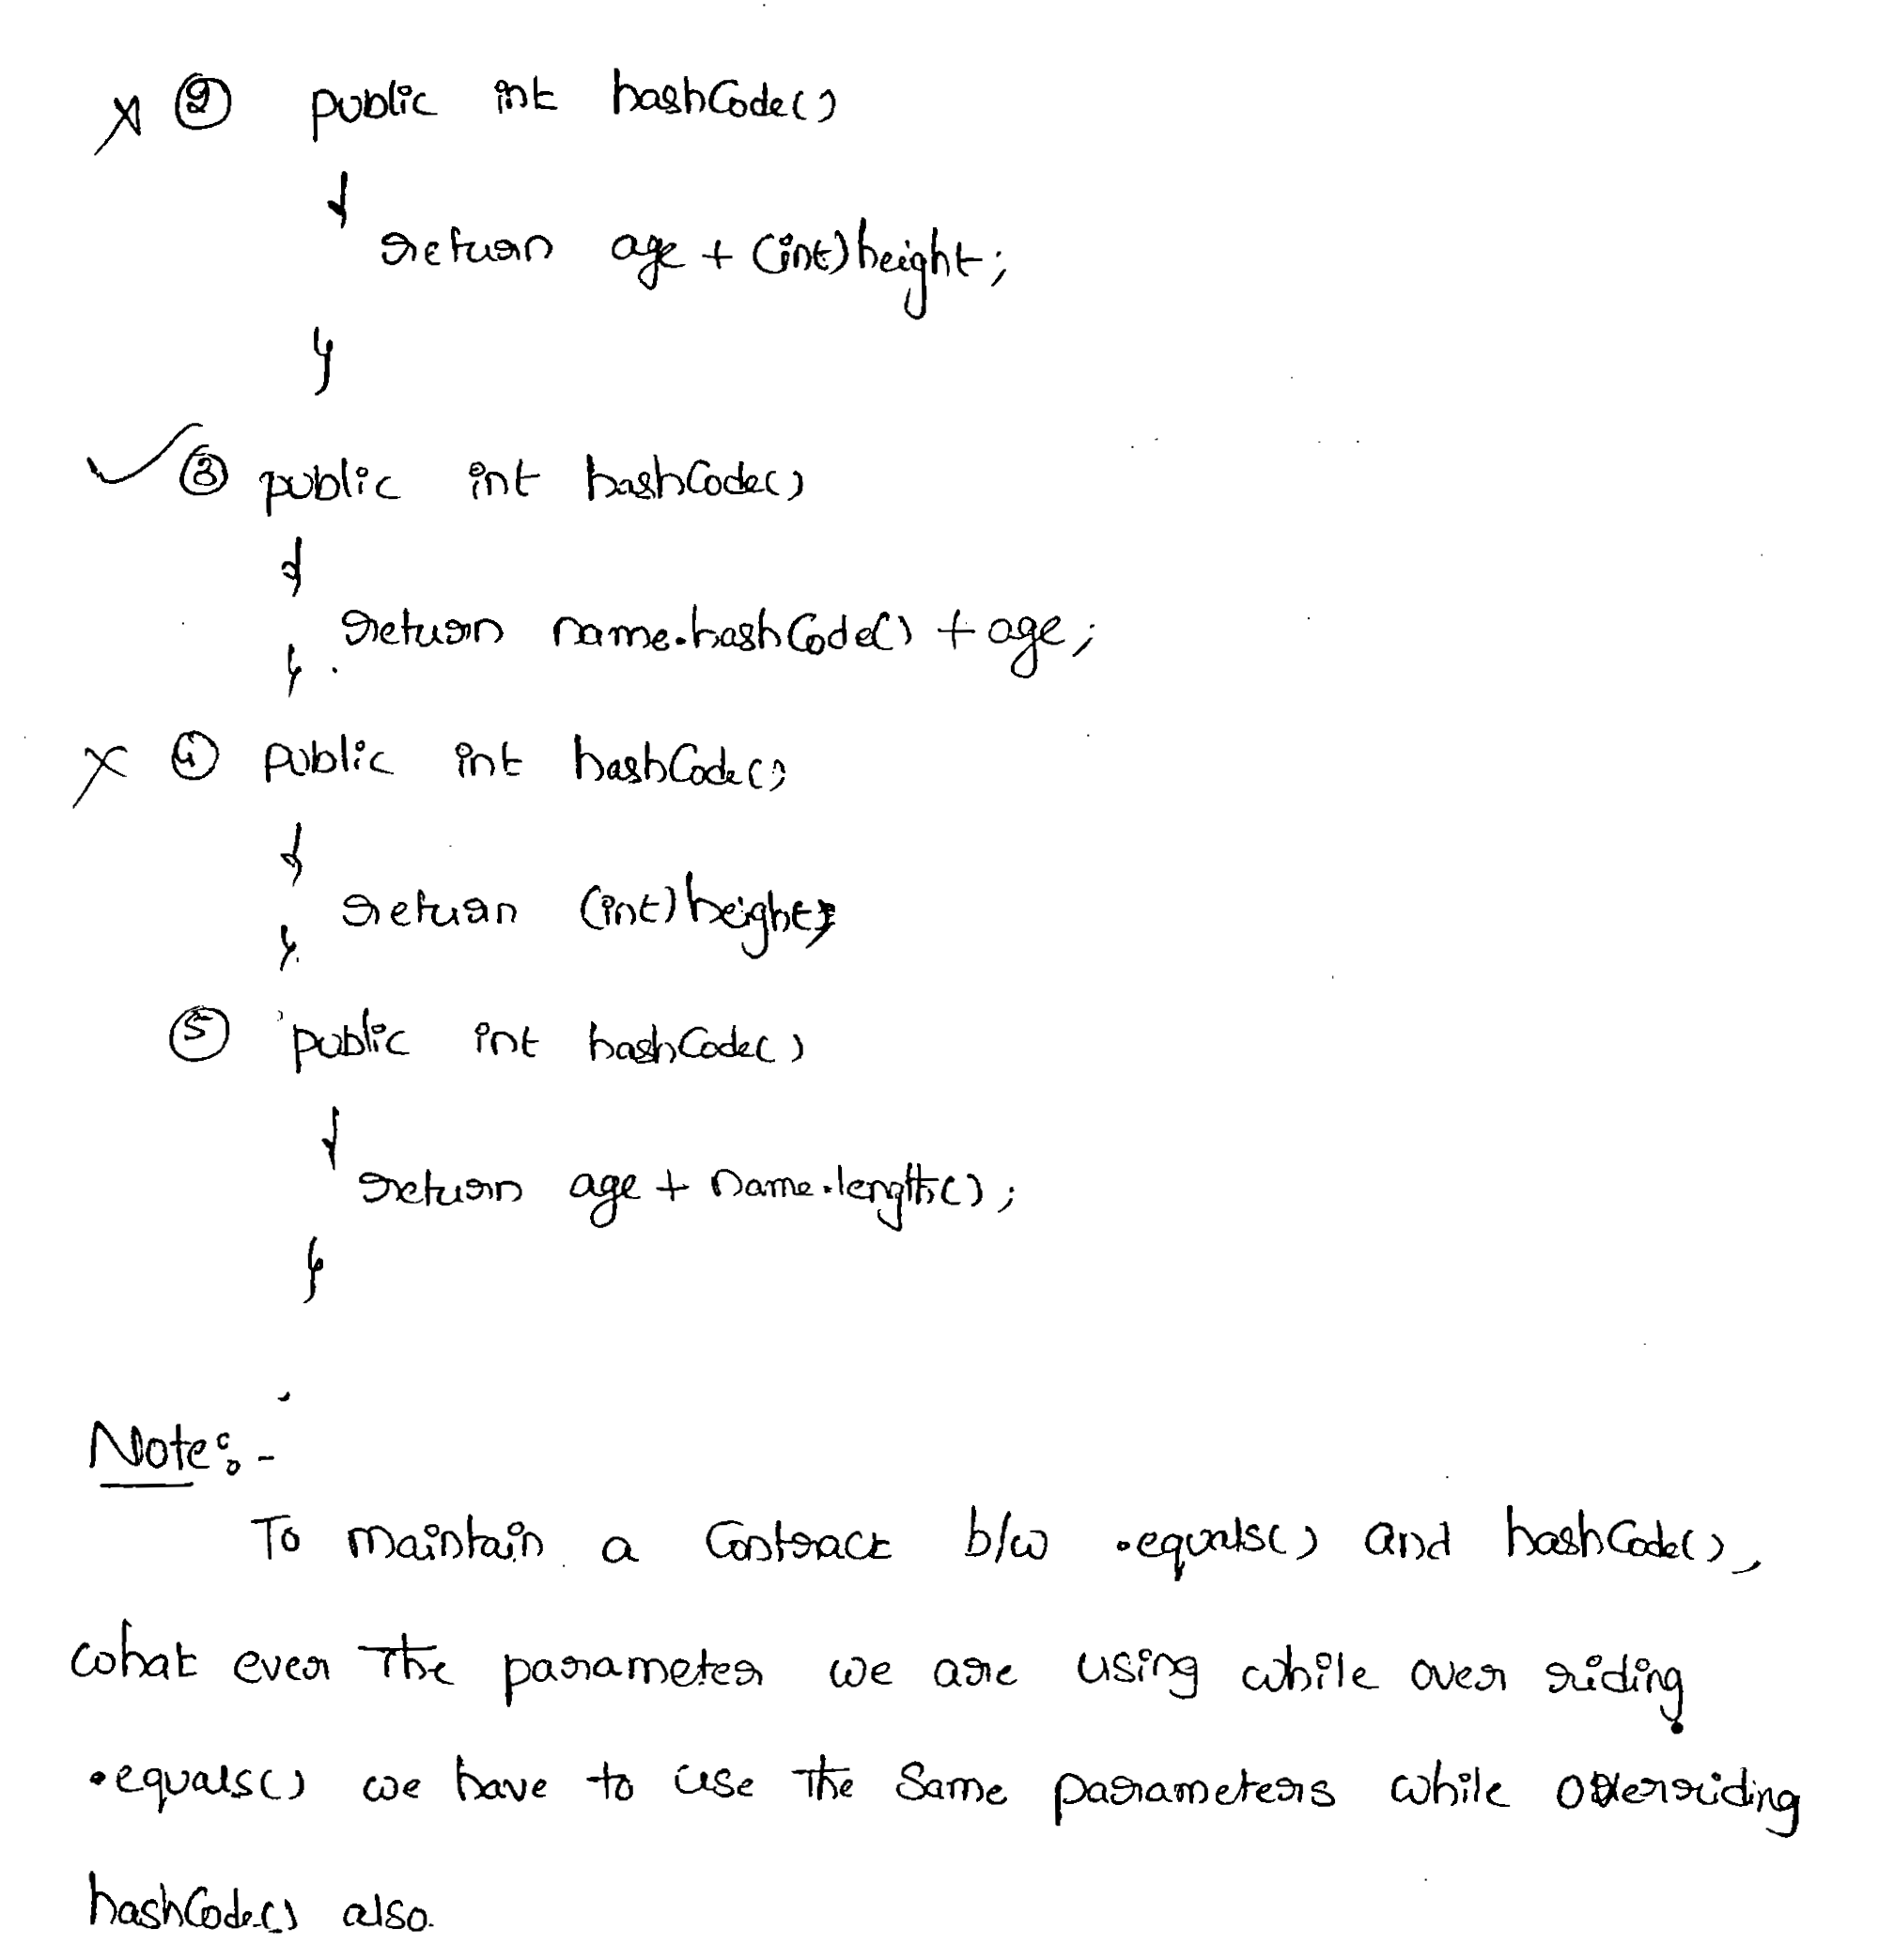 ✗ ② public int hashCode()
{
return age + (int)height;
}
✓ ③ public int hashCode()
{
return name.hashCode() + age;
}
✗ ④ public int hashCode()
{
return (int)height;
}
⑤ public int hashCode()
{
return age + name.length();
}
Note:-
To maintain a Contract b/w .equals() and hashCode(),
what ever the parameter we are using while over riding
.equals() we have to use the same parameters while overriding
hashCode() also.